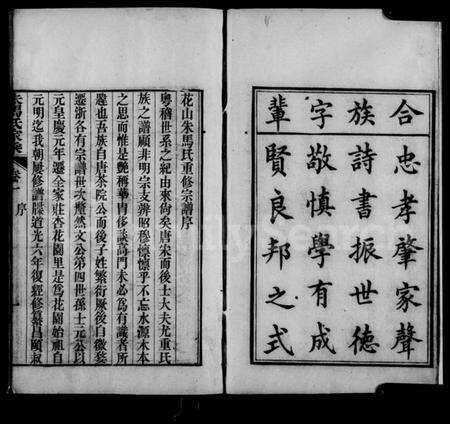 合忠孝肇家聲
族詩書振世德
字敬慎學有成
輩賢良邦之式
花山朱馬氏重修宗譜序
粵稽世系之紀由來尚矣唐宋而後士大夫尤重氏
族之譜顧非明宗支辨昭穆懍懍乎不忘水源木本
之思而惟是艷稱華胄侈談高門未必為有識者所
違也吾族自唐茶院公而後子姓繁衍厥後自徽婺
遷浙各有宗譜世次釐然文公第四世孫士元公以
元皇慶元年遷全家莊杏花園里是為花園始祖自
元明迄我朝屢修譜牒道光六年復經修纂昌頤叔
卷一 序